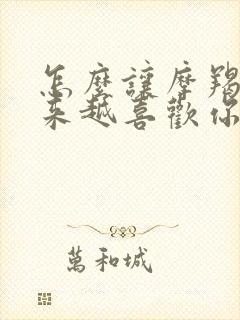 怎麼讓摩羯
來越喜歡你
萬和城